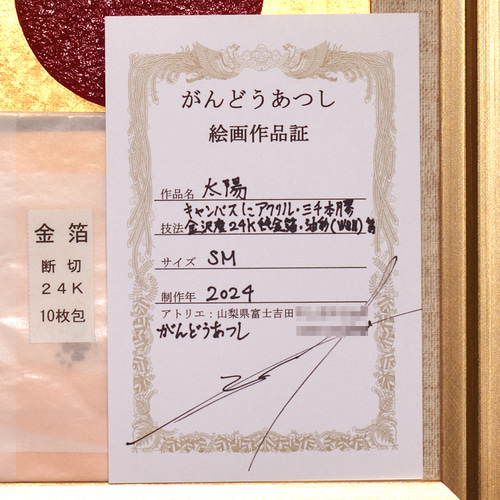 がんどうあつし
絵画作品証
作品名 太陽
キャンバスにアクリル・三千本膠
技法 金沢産24K純金箔・油彩(Wall)等
サイズ SM
制作年 2024
アトリエ:山梨県富士吉田
がんどうあつし
金箔
断切
24K
10枚包